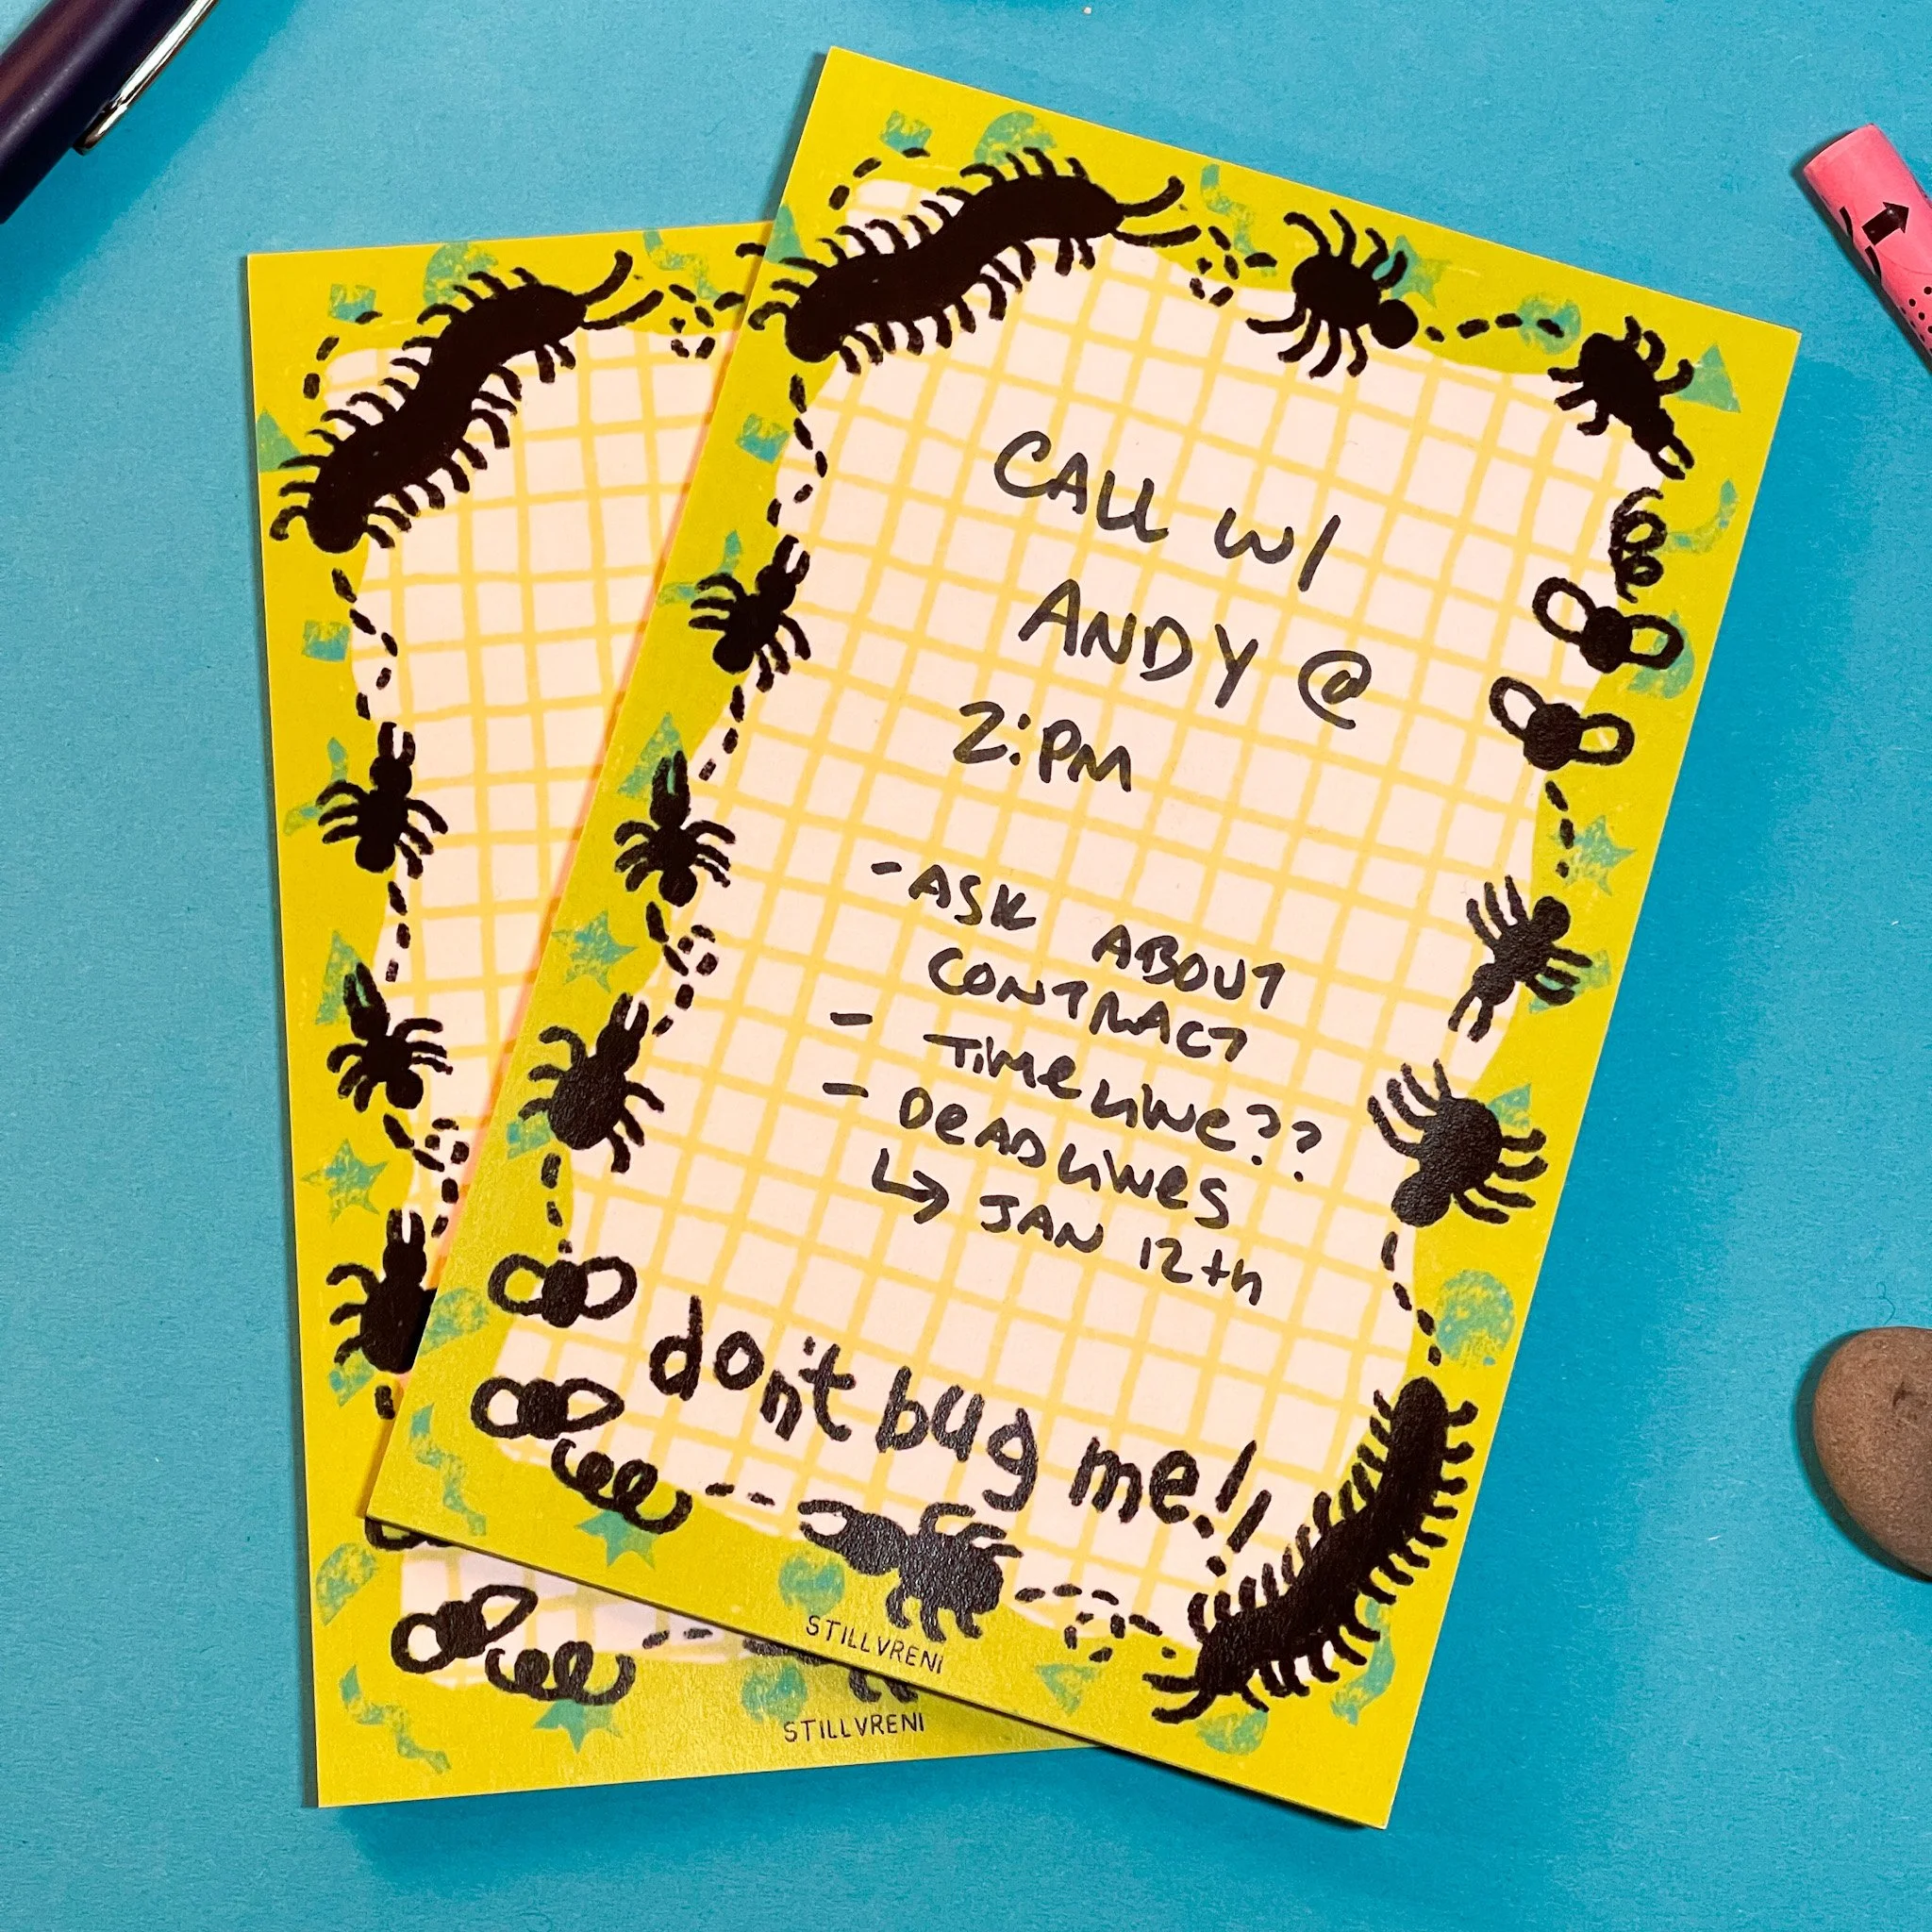 CALL W/
ANDY @
2:PM
-ASK ABOUT
CONTRACT
- TiMeLiNe??
- DeADLiNes
↳ JAN 12th
don't bug me!!
STILLVRENI
STILLVRENI